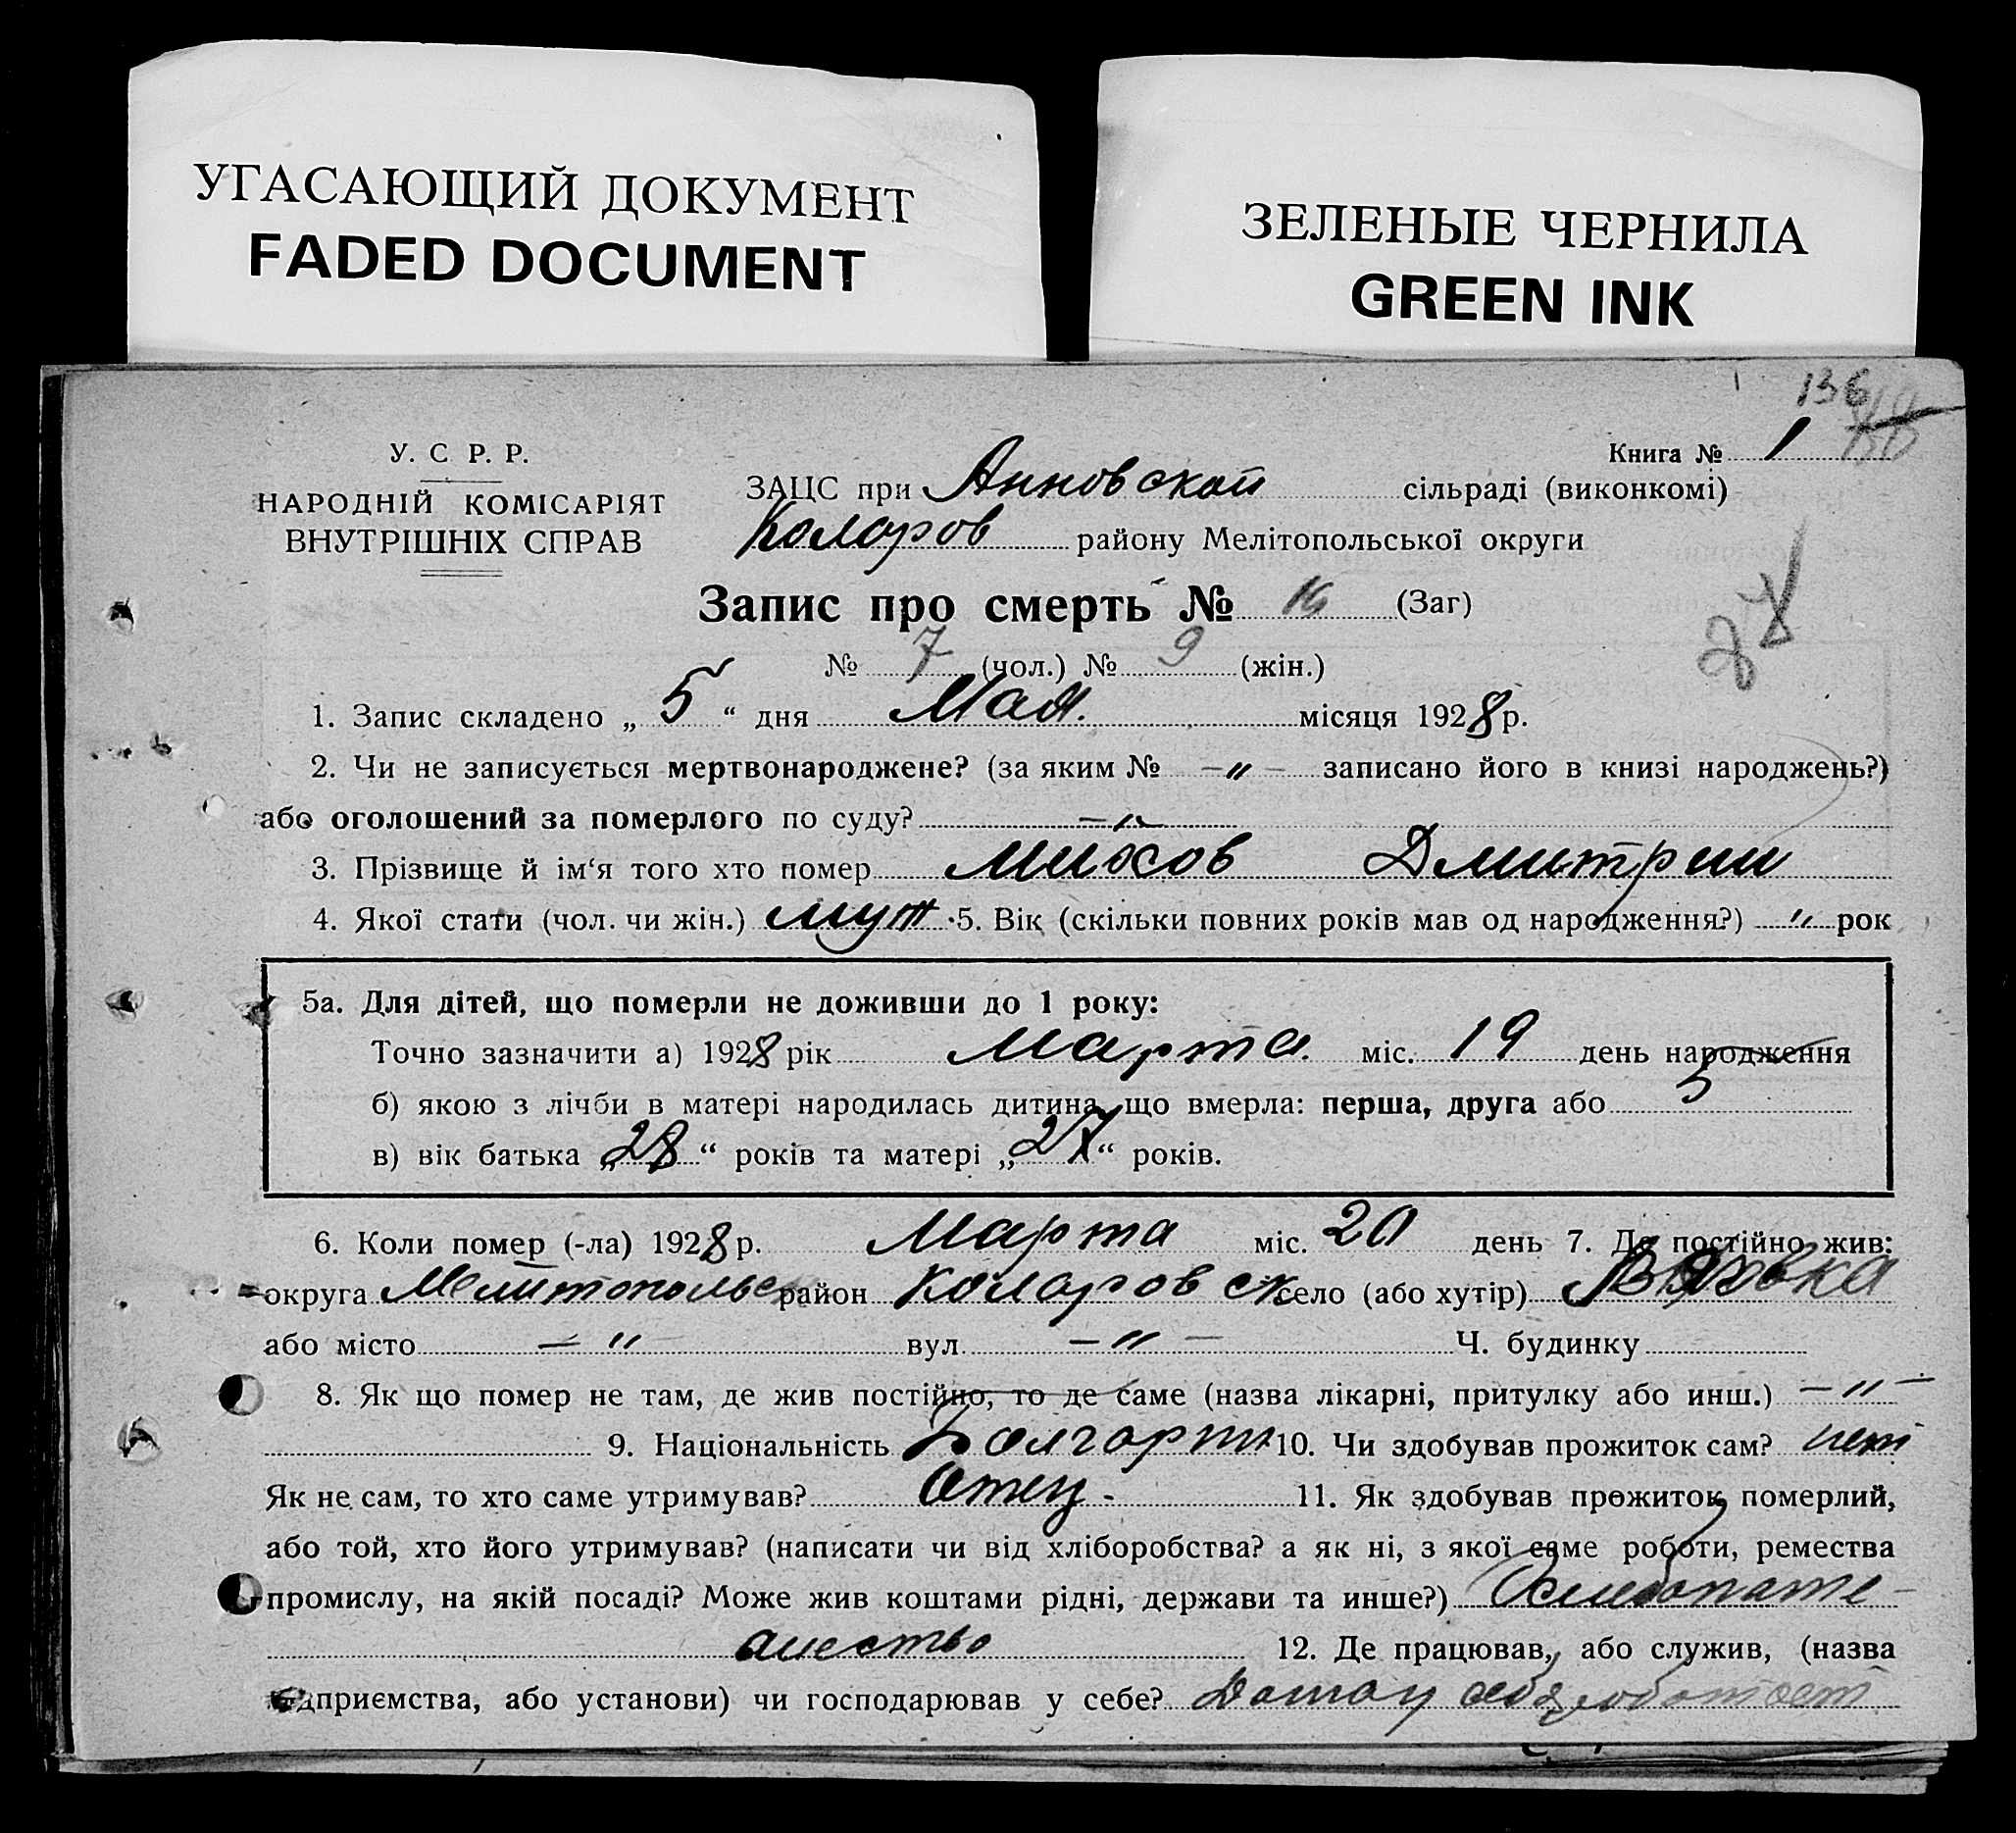 УГАСАЮЩИЙ ДОКУМЕНТ
FADED DOCUMENT
ЗЕЛЕНЫЕ ЧЕРНИЛА
GREEN INK
136
У. С. Р. Р.
НАРОДНІЙ КОМІСАРІЯТ
ВНУТРІШНІХ СПРАВ
Книга № 1
ЗАЦС при Анновской сільраді (виконкомі)
Коларов району Мелітопольської округи
Запис про смерть № 16 (Заг)
№ 7 (чол.) № 9 (жін.)
28
1. Запис складено „ 5 “ дня Мая. місяця 1928 р.
2. Чи не записується мертвонароджене? (за яким № —„— записано його в книзі народжень?)
або оголошений за померлого по суду? —„—
3. Прізвище й ім‘я того хто помер Михов Дмитрии
4. Якої стати (чол. чи жін.) муж 5. Вік (скільки повних років мав од народження?) „ рок
5а. Для дітей, що померли не доживши до 1 року:
Точно зазначити а) 1928 рік Марта. міс. 19 день народження
б) якою з лічби в матері народилась дитина, що вмерла: перша, друга або 5
в) вік батька „28“ років та матері „27“ років.
6. Коли помер (-ла) 1928 р. Марта міс. 20 день 7. Де постійно жив:
округа Мелитопольс район Коларовск село (або хутір)
або місто — „ вул. — „ — Ч. будинку
8. Як що помер не там, де жив постійно, то де саме (назва лікарні, притулку або инш.) — „ —
9. Національність Болгарин 10. Чи здобував прожиток сам? нет
Як не сам, то хто саме утримував? Отец. 11. Як здобував прожиток померлий,
або той, хто його утримував? (написати чи від хліборобства? а як ні, з якої саме роботи, ремества
промислу, на якій посаді? Може жив коштами рідні, держави та инше?) Хлебопате-
шество 12. Де працював, або служив, (назва
підприємства, або установи) чи господарював у себе?